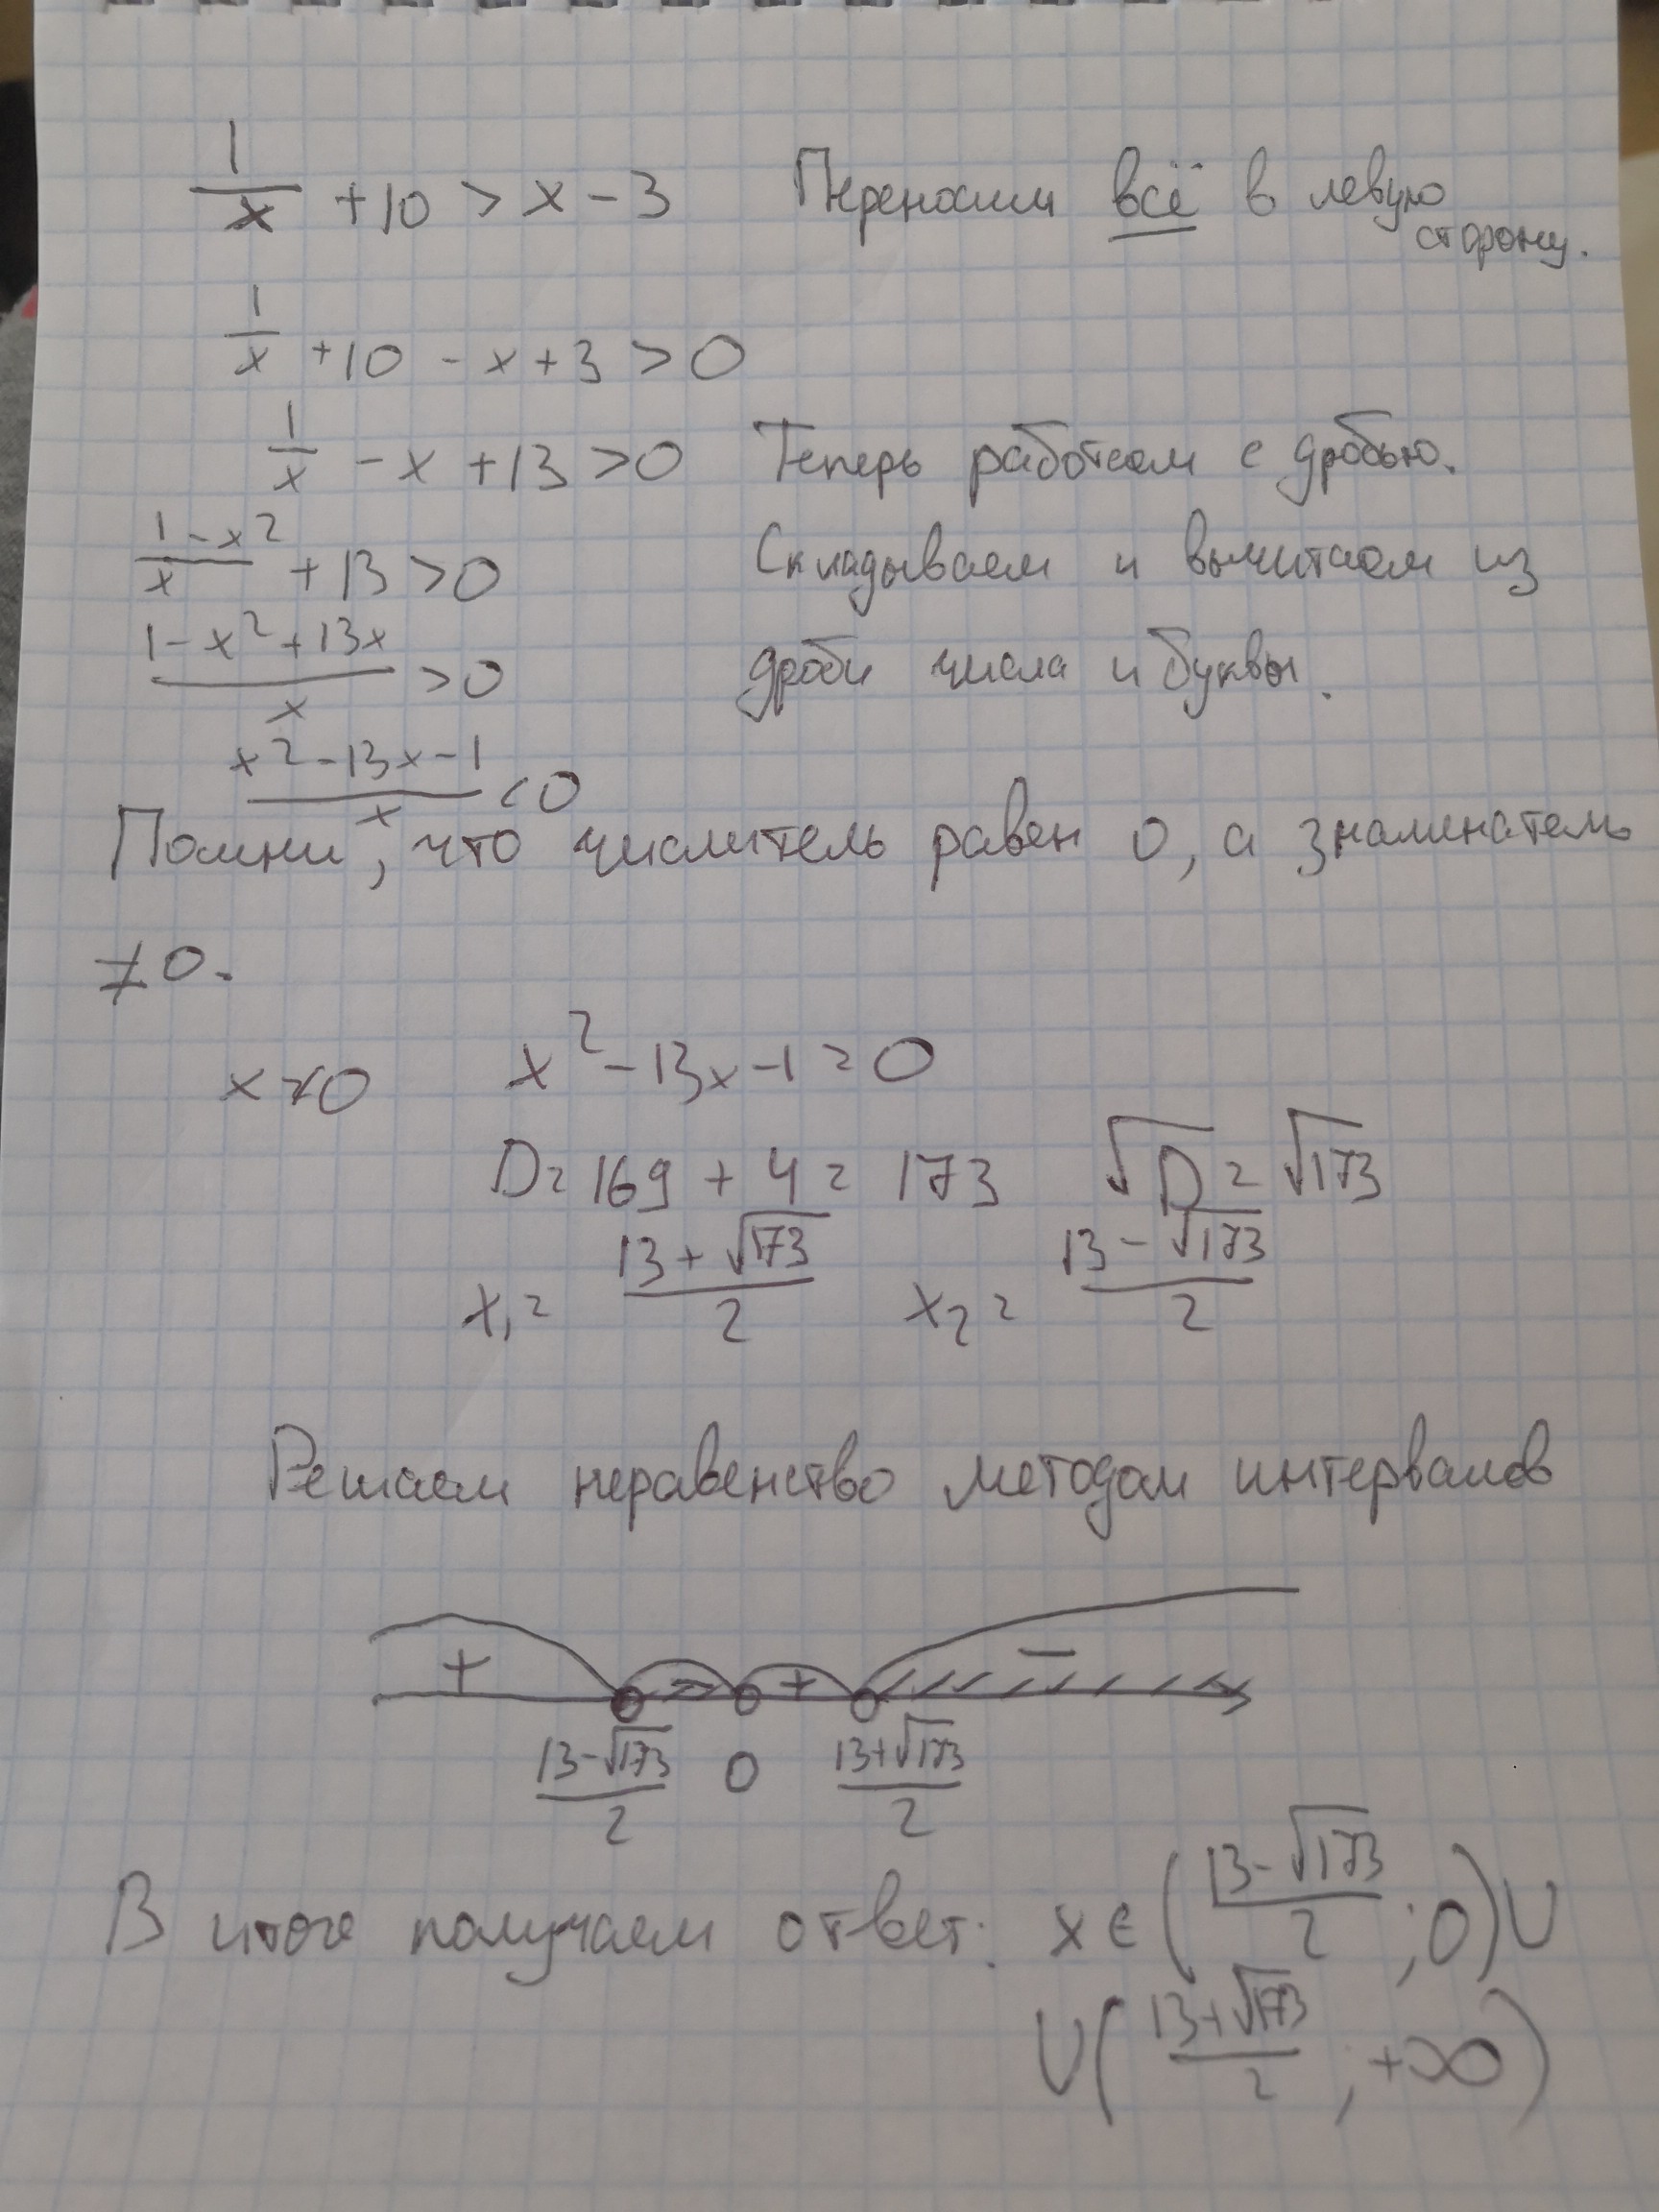 1/x + 10 > x - 3 Переносим всё в левую
сторону.
1/x + 10 - x + 3 > 0
1/x - x + 13 > 0 Теперь работаем с дробью.
(1 - x²)/x + 13 > 0 Складываем и вычитаем из
(1 - x² + 13x)/x > 0 дроби числа и буквы.
(x² - 13x - 1)/x < 0
Помни, что числитель равен 0, а знаминатель
≠ 0.
x ≠ 0 x² - 13x - 1 = 0
D = 169 + 4 = 173 √D = √173
x₁ = (13 + √173)/2 x₂ = (13 - √173)/2
Решаем неравенство методом интервалов
+ - + -
(13 - √173)/2 0 (13 + √173)/2
В итоге получаем ответ: x ∈ ((13 - √173)/2 ; 0) ∪
∪ ((13 + √173)/2 ; +∞)